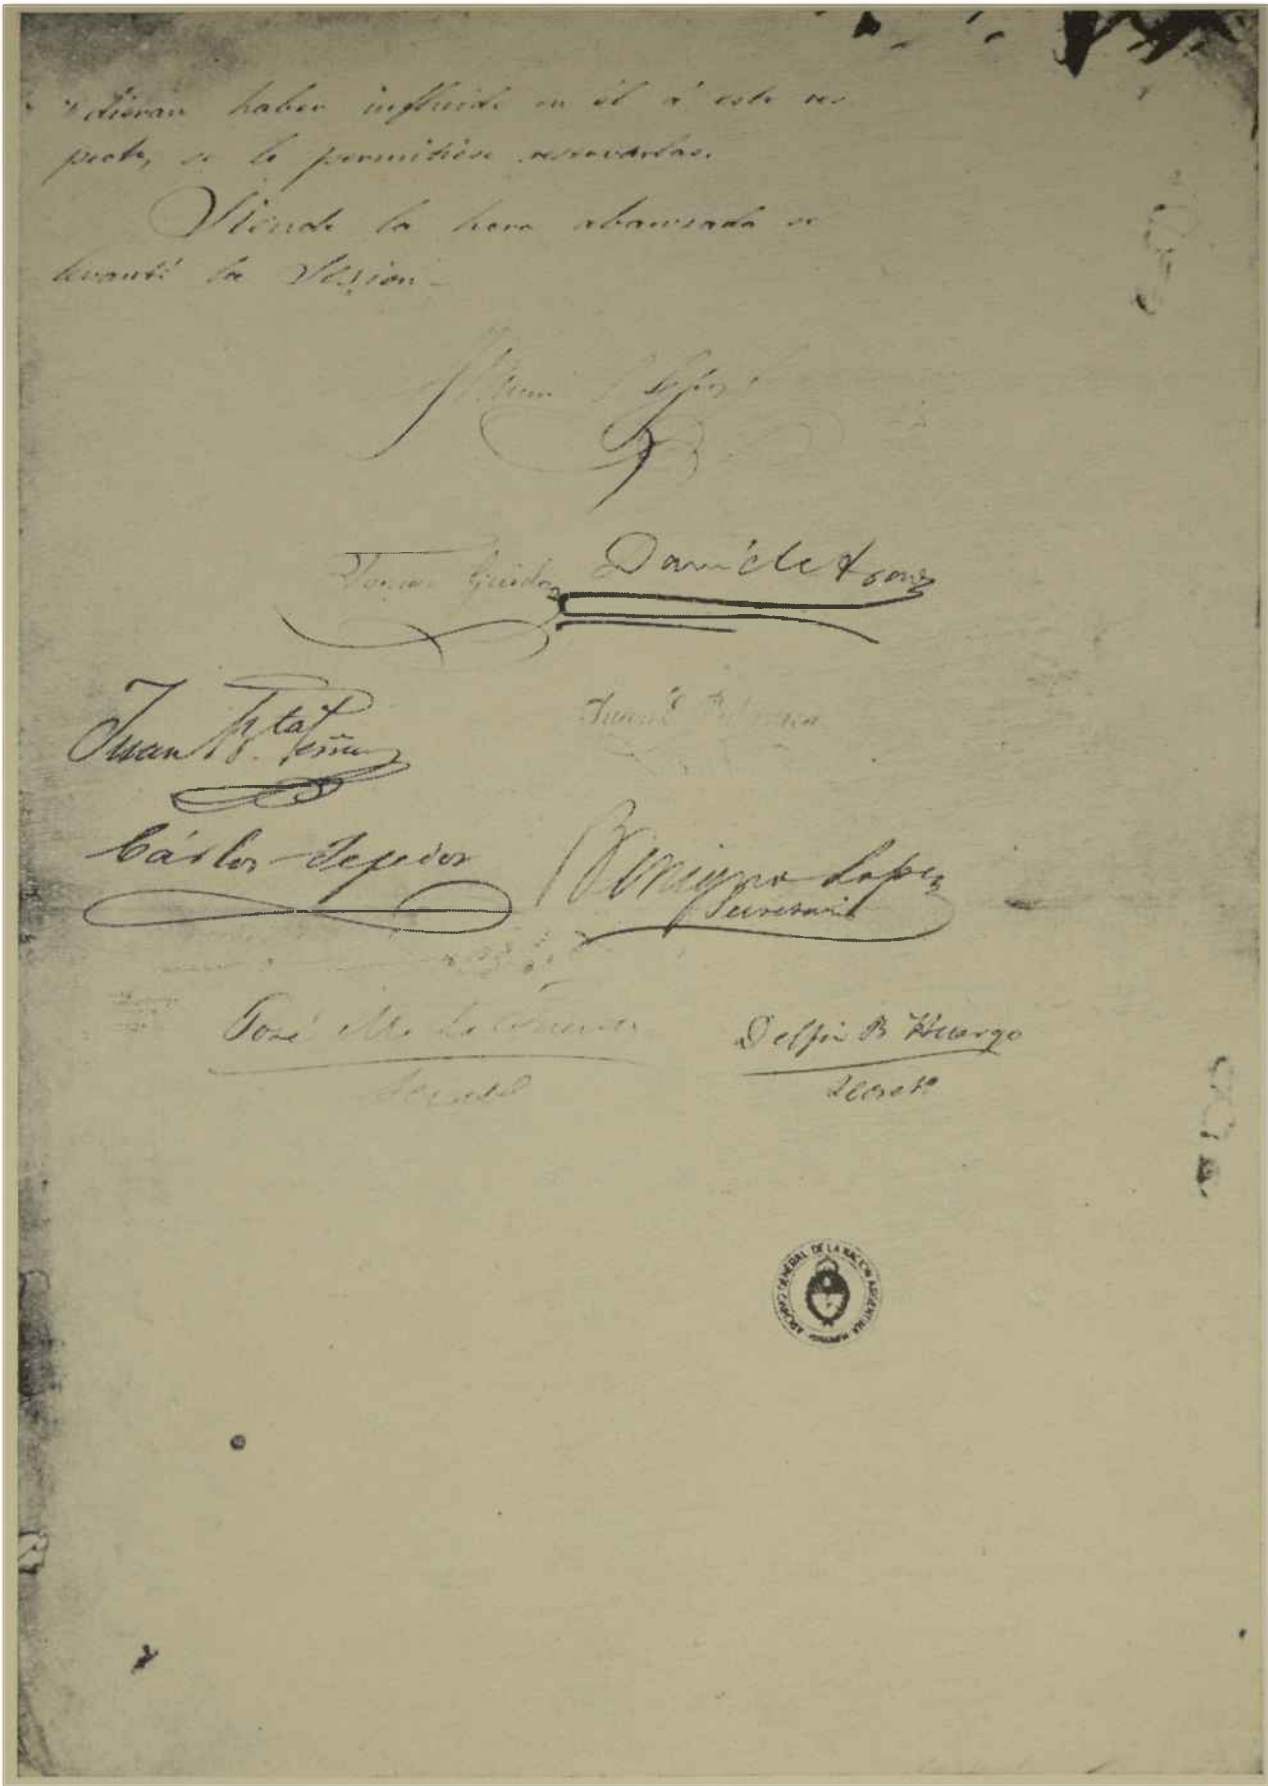 pudieran haber influido en él á este res
pecto, se le permitiese reservarlas.
Siendo la hora abanzada se
levantó la Sesion.
Lopez
Tomas Guido Daniel Araoz
Juan Bta Peña
Juan E. Pedernera
Cárlos Tejedor
Benigno Lopez
Secretario
José M. La Fuente
Secret
Delfin B Huergo
Secreto
ARCHIVO GENERAL DE LA NACION ARGENTINA